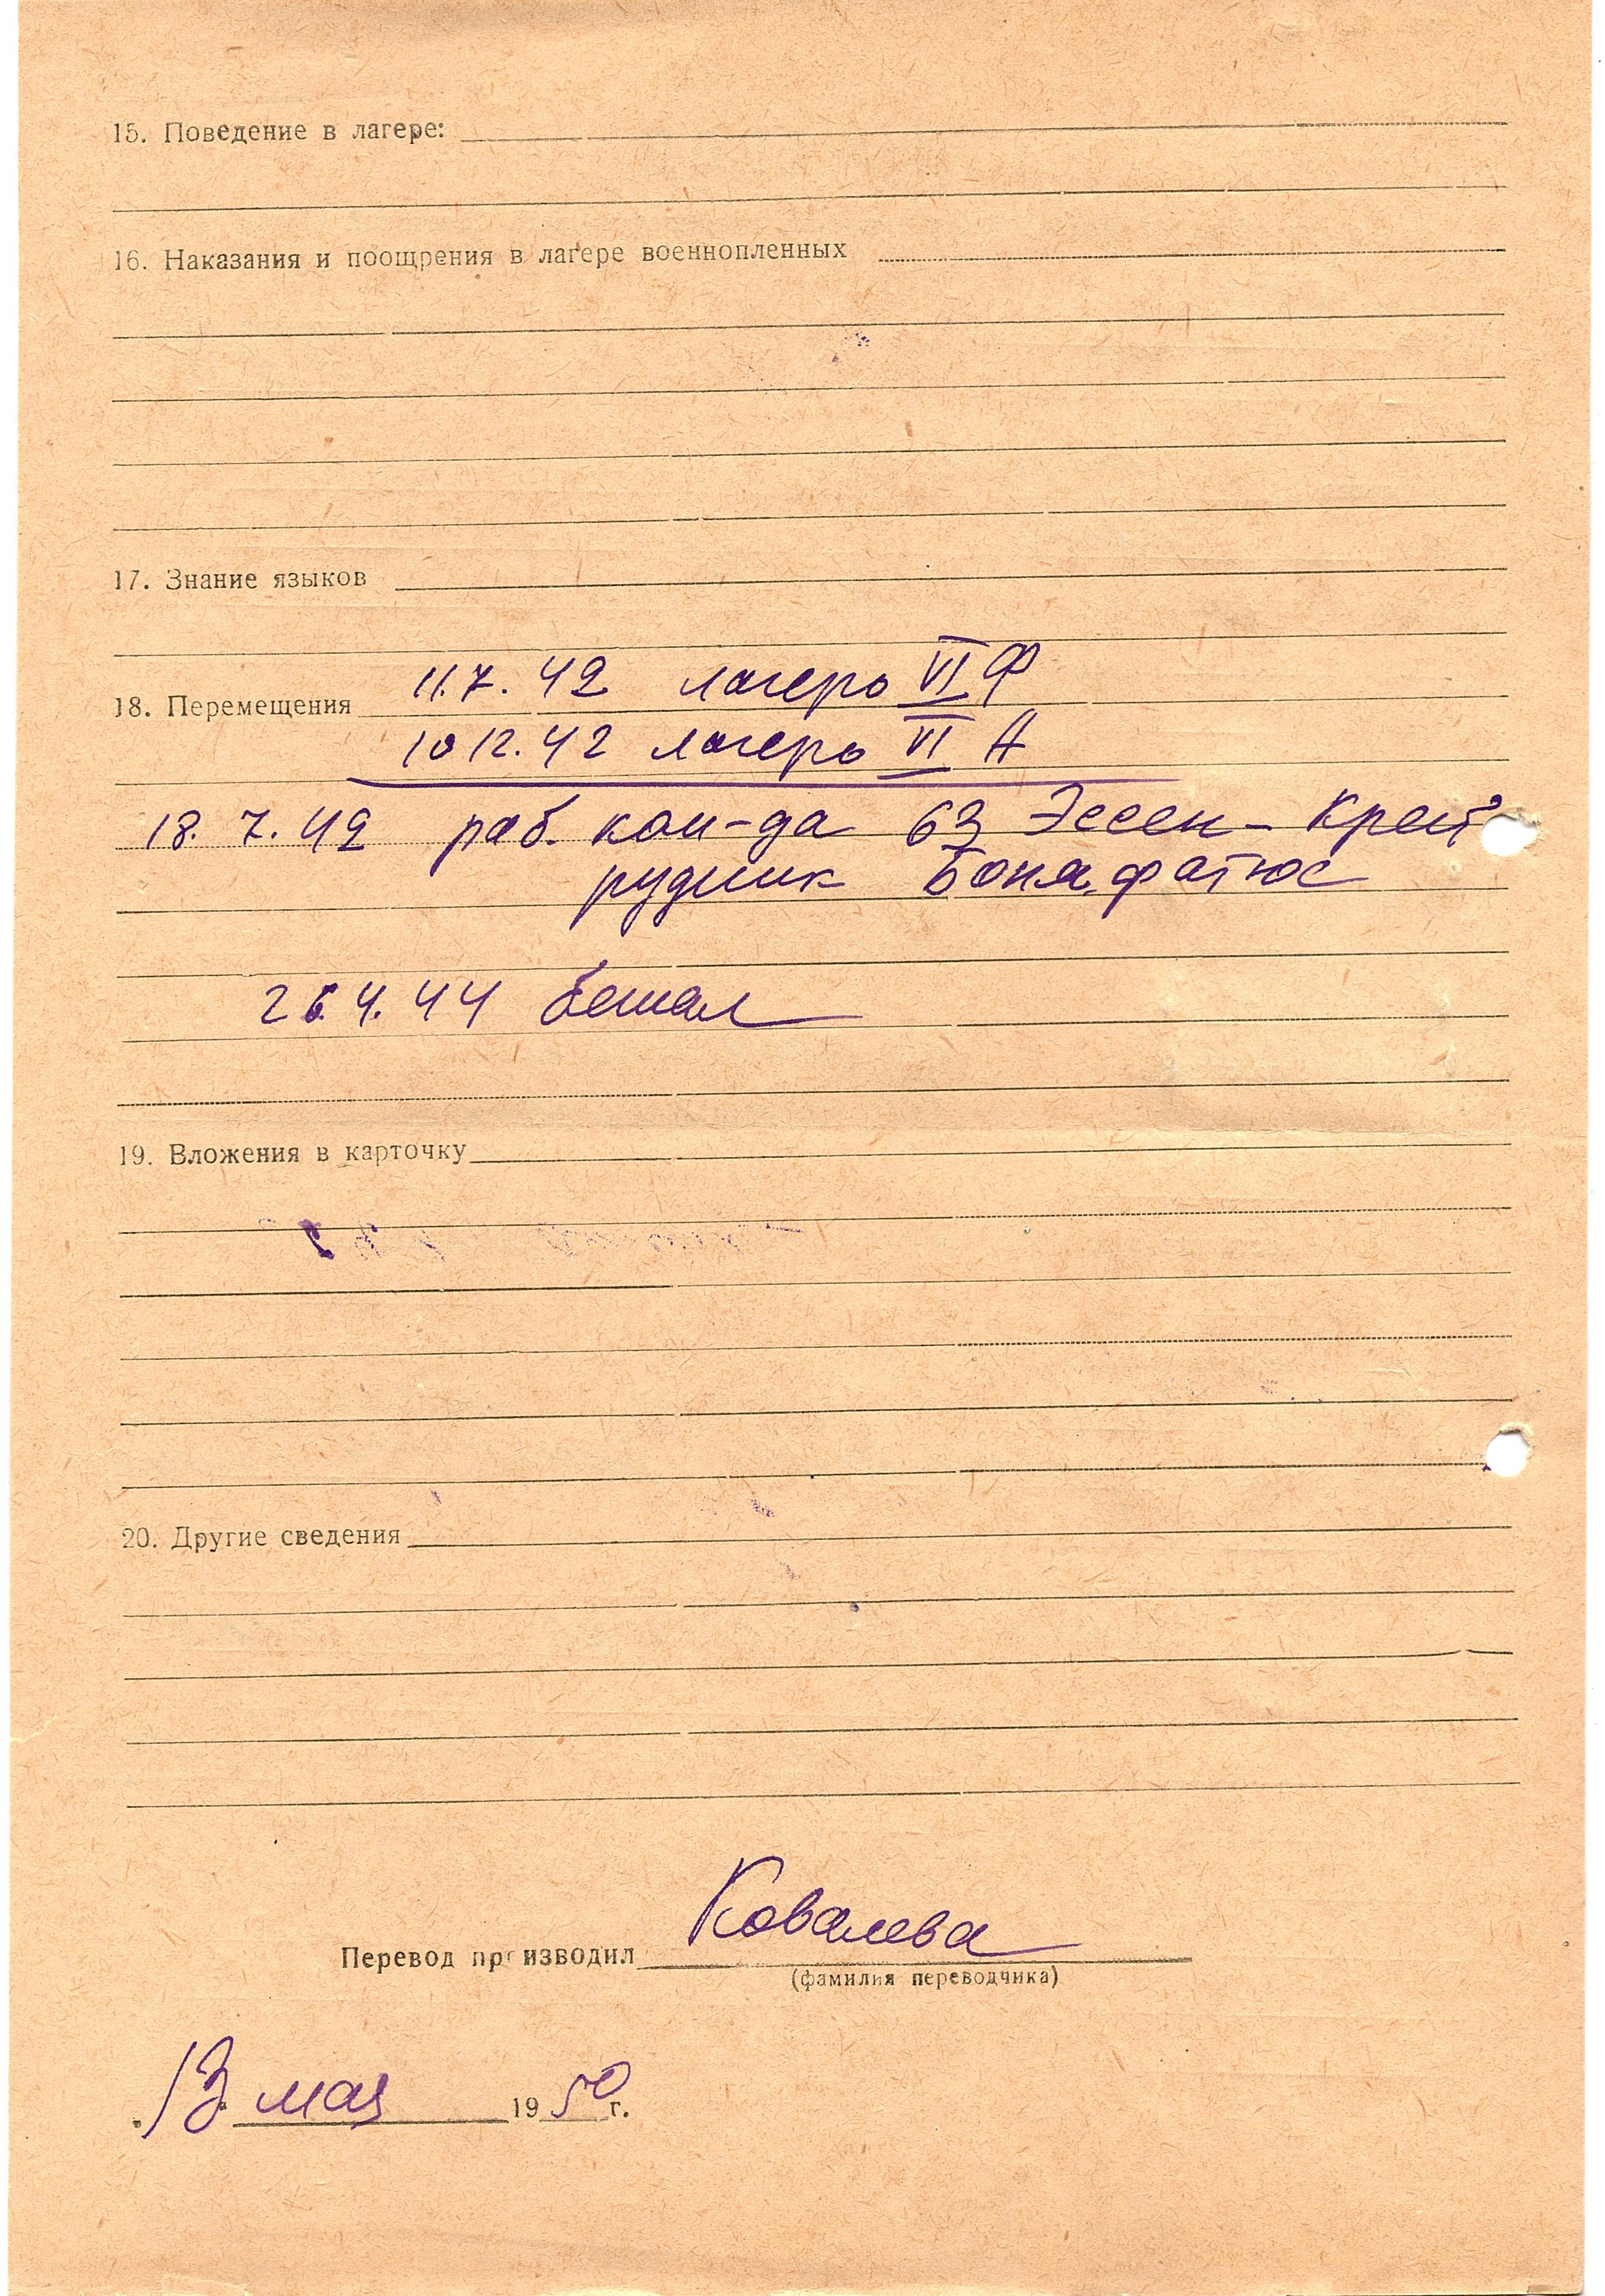 15. Поведение в лагере:
16. Наказания и поощрения в лагере военнопленных
17. Знание языков
11.7.42 лагерь VI Ф
18. Перемещения
10 12.42 лагерь VI А
18. 7. 42 раб. ком-да 63 Эссен-Крей
рудник Бонифатюс
26.4.44 бежал
19. Вложения в карточку
20. Другие сведения
Ковалева
Перевод производил
(фамилия переводчика)
13 мая 1950 г.